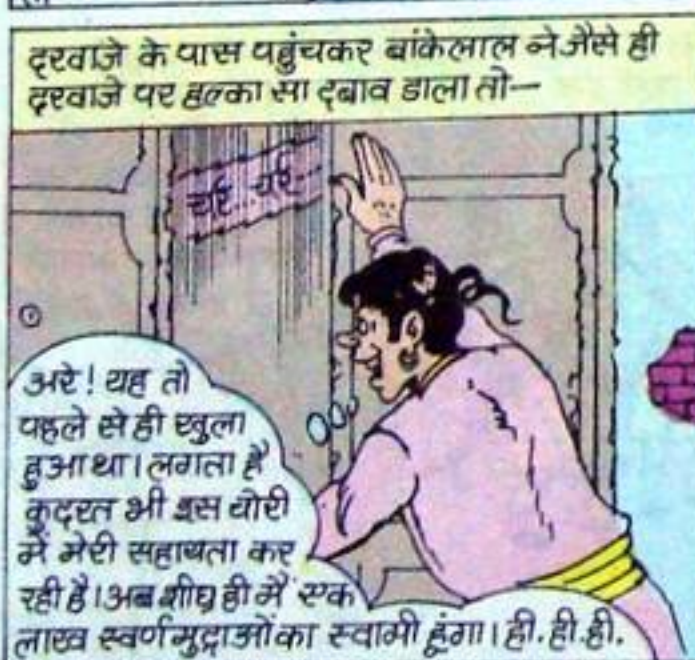 दरवाजे के पास पहुंचकर बांकेलाल ने जैसे ही
दरवाजे पर हल्का सा दबाव डाला तो—
चर्र...चर्र...
अरे! यह तो
पहले से ही खुला
हुआ था। लगता है
कुदरत भी इस चोरी
में मेरी सहायता कर
रही है। अब शीघ्र ही मैं एक
लाख स्वर्णमुद्राओं का स्वामी हूंगा। ही. ही. ही.